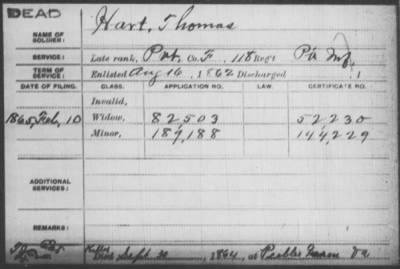 DEAD
NAME OF SOLDIER: Hart, Thomas
SERVICE: Late rank, Pvt. Co. F, 118 Reg't Pa Inf.
TERM OF SERVICE: Enlisted Aug 16, 1862 Discharged , 1
DATE OF FILING. CLASS. APPLICATION NO. LAW. CERTIFICATE NO.
Invalid,
1865, Feb, 10 Widow, 82,503 52230
Minor, 187,188 144,229
ADDITIONAL SERVICES:
REMARKS:
Killed
Died Sept. 30, 1864, at Peebles Farm Va